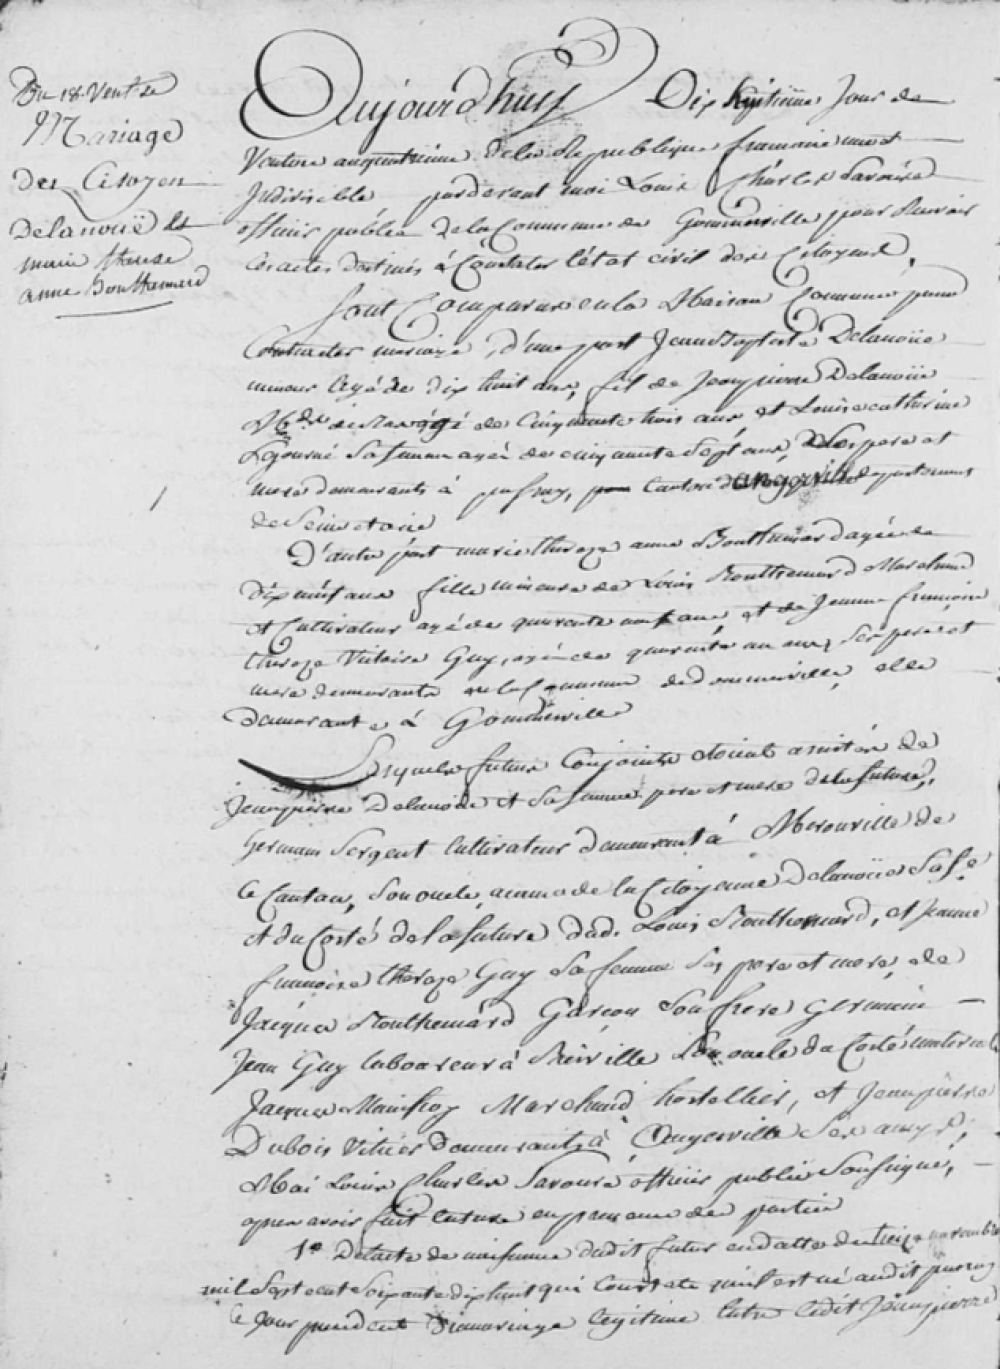 Du 18 Vent.se
Mariage
Des Citoyen
Delanoüe et
marie therese
anne Bouthemard
Aujourd'huy Dix huitieme Jour de
Ventose anquatrieme dela Republique francaise une et
Indivisible pardevant moi Louis Charles Savouré
officier public dela Commune de Gommerville pour Recevoir
Les actes destinés à Constater l'état civil des Citoyens,
Sont Comparus en la Maison Commune pour
Contracter mariage, d'une part Jean Baptiste Delanoüe
mineur agé de dix huit ans, fils de Jean pierre Delanoüe
agé de Cinquante trois ans, et Louise catherine
Lejeune Sa femme agée de cinquante Sept ans, Ses pere et
mere demeurants à pussay, Canton d'angerville departement
de Seine et oise
D'autre part marie thereze anne Bouthemard agée de
Dix neuf ans fille mineure de Louis Bouthemard Marchand
et Cultivateur agé de quarente ans, et de Jeanne francoise
thereze Victoire Guy, agée de quarante un ans, Ses pere et
mere demeurants en la Commune de Gommerville, elle
Demeurante à Gommerville
Lesquels futurs Conjoints etoient assistés de
Jean pierre Delanoüe et Sa femme pere et mere de la future,
Germain Sergent Cultivateur demeurant à Merouville de
Ce Canton, Son oncle, acause de la Citoyenne Delanoüe Sa fe
et du Costé de la future dud. Louis Bouthemard, et Jeanne
francoise thereze Guy Sa femme Ses pere et mere, de
Jacques Bouthemard Garcon Son frere Germain
Jean Guy laboureur à Son oncle du Costé maternel
Jacques Mainfroy Marchand hostellier, et Jean pierre
Dubois Vitrier demeurants à Angerville Ses amys,
Moi Louis Charles Savouré officier public Soussigné,
apres avoir fait lecture en presence des parties
1° De l'acte de naissance dudit futur en datte du treize novembre
mil Sept cent Soixante dix huit qui Constate qu'il est né audit pussay
Ce Jour du mariage legitime Entre Ledit Jean pierre